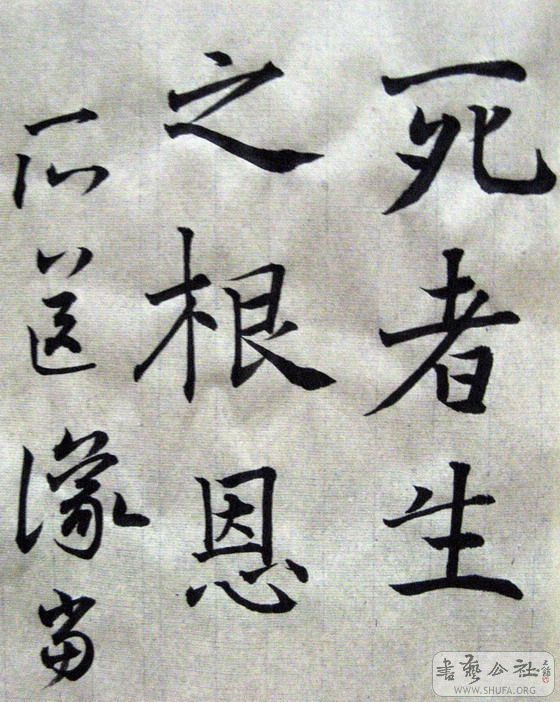 死者生
之根恩
當
書藝公社
WWW.SHUFA.ORG